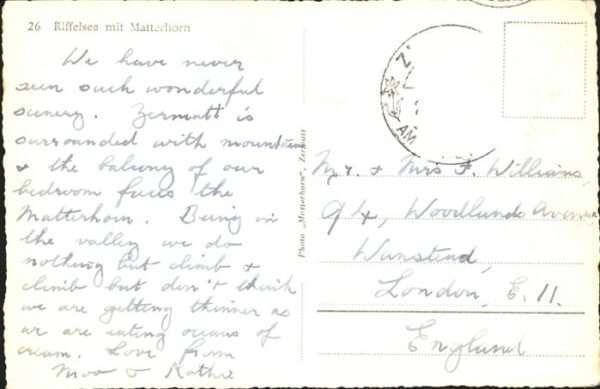 26 Riffelsee mit Matterhorn
We have never
seen such wonderful
scenery. Zermatt is
surrounded with mountains
& the balcony of our
bedroom faces the
Matterhorn. Being in
the valley we do
nothing but climb &
climb but don't think
we are getting thinner as
we are eating oceans of
cream. Love from
Photo „Matterhorn", Zermatt
Z
AM
Mr. & Mrs F. Williams,
94, Woodlands Avenue
Wanstead,
London, E. 11.
England